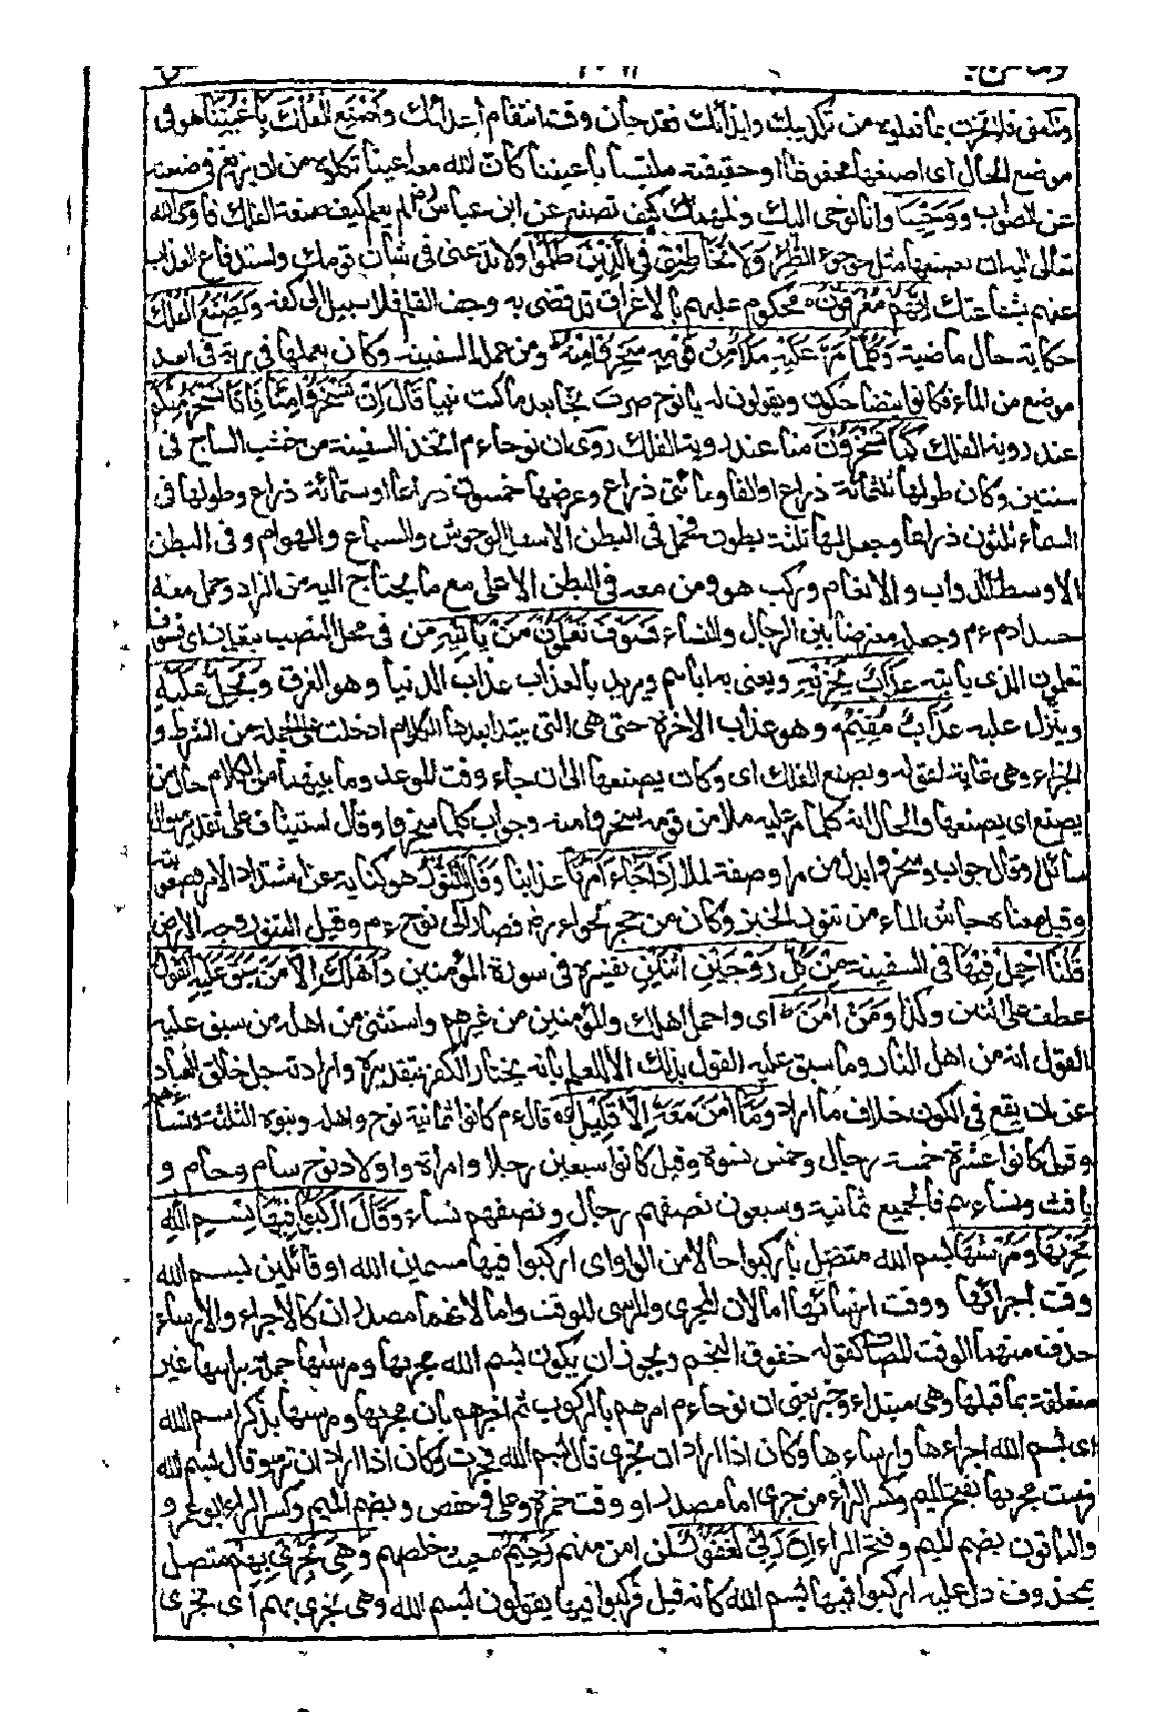 ومسكين فلا تحزن بما فعلوه من تكذيبك وايذائك فقد حان وقت انتقام اعدائك واصنع الفلك باعيننا هو فى
موضع الحال اى اصنعها محفوظا وحقيقته ملتبسا باعيننا كان لله معه اعينا تكلؤه من ان يزيغ فى صنعته
عن الصواب ووحينا وانا نوحى اليك ونلهمك كيف تصنع عن ابن عباس رض لم يعلم كيف صنعة الفلك فاوحى الله
تعالى اليه ان يصنعها مثل جؤجؤ الطير ولا تخاطبنى فى الذين ظلموا ولا تدعنى فى شان قومك واستدفاع العذاب
عنهم بشفاعتك انهم مغرقون محكوم عليهم بالاغراق قد قضى به وجف القلم فلا سبيل الى كفه ويصنع الفلك
حكاية حال ماضية وكلما مر عليه ملأ من قومه سخروا منه ومن عمله السفينة وكان يعملها فى برية فى ابعد
موضع من الماء فكانوا يتضاحكون ويقولون له يا نوح صرت نجارا بعد ما كنت نبيا قال ان تسخروا منا فانا نسخر منكم
عند روية الفلك كما تسخرون منا عند روية الفلك روى ان نوحا ءم اتخذ السفينة من خشب الساج فى
سنتين وكان طولها ثلثمائة ذراع او الفا ومائتى ذراع وعرضها خمسون ذراعا او ستمائة ذراع وطولها فى
السماء ثلثون ذراعا وجعل لها ثلثة بطون فحمل فى البطن الاسفل الوحوش والسباع والهوام وفى البطن
الاوسط الدواب والانعام وركب هو ومن معه فى البطن الاعلى مع ما يحتاج اليه من الزاد وحمل معه
جسد ادم ءم وجعله معترضا بين الرجال والنساء فسوف تعلمون من ياتيه من فى محل النصب بتعلمون اى فسوف
تعلمون الذى ياتيه عذاب يخزيه ويعنى به اياهم ويريد بالعذاب عذاب الدنيا وهو الغرق ويحل عليه
وينزل عليه عذاب مقيم وهو عذاب الاخرة حتى هى التى يبتدا بعدها الكلام ادخلت على الجملة من الشرط و
الجزاء وهى غاية لقوله ويصنع الفلك اى وكان يصنعها الى ان جاء وقت الموعد وما بينهما من الكلام حال من
يصنع اى يصنعها والحال انه كلما مر عليه ملا من قومه سخروا منه وجواب كلما سخروا وقال استيناف على تقدير سوال
سائل او قال جواب وسخروا بدل من مر او صفة لملا اذا جاء امرنا عذابنا وفار التنور هو كناية عن اشتداد الامر وصعوبته
وقيل معناه جاش الماء من تنور الخبز وكان من حجر لحواء رض فصار الى نوح ءم وقيل التنور وجه الارض
قلنا احمل فيها فى السفينة من كل زوجين اثنين تفسيره فى سورة المؤمنين واهلك الا من سبق عليه القول
عطف على اثنين وكذا ومن امن اى واحمل اهلك والمؤمنين من غيرهم واستثنى من اهله من سبق عليه
القول انه من اهل النار وما سبق عليه القول بذلك الا للعلم بانه يختار الكفر بتقديره وارادته جل خالق العباد
عن ان يقع فى الكون خلاف ما اراد وما امن معه الا قليل قال ءم كانوا ثمانية نوح واهله وبنوه الثلثة ونساءهم
وقيل كانوا عشرة خمسة رجال وخمس نسوة وقيل كانوا سبعين رجلا وامراة واولاد نوح سام وحام و
يافث ونساءهم فالجميع ثمانية وسبعون نصفهم رجال ونصفهم نساء وقال اركبوا فيها بسم الله
مجريها ومرسها بسم الله متصل باركبوا حالا من الواو اى اركبوا فيها مسمين الله او قائلين بسم الله
وقت اجرائها ووقت ارسائها اما لان المجرى والمرسى للوقت واما لانهما مصدران كالاجراء والارساء
حذف منهما الوقت المضاف كقوله خفوق النجم ويجوز ان يكون بسم الله مجريها ومرسها جملة براسها غير
متعلقة بما قبلها وهى مبتداء وخبر يعنى ان نوحا ءم امرهم بالركوب ثم اخبرهم بان مجريها ومرسها بذكر اسم الله
اى بسم الله اجراءها وارساءها وكان اذا اراد ان تجرى قال بسم الله فجرت وكان اذا اراد ان ترسو قال بسم الله
فرست مجريها بفتح الميم وكسر الراء من جرى اما مصدر او وقت حمزة وعلى وحفص وبضم الميم وكسر الراء ابو عمرو و
والباقون بضم الميم وفتح الراء ان ربى لغفور لمن امن منهم رحيم حيث خلصهم وهى تجرى بهم متصل
بمحذوف دل عليه اركبوا فيها بسم الله كانه قيل فركبوا فيها يقولون بسم الله وهى تجرى بهم اى تجرى